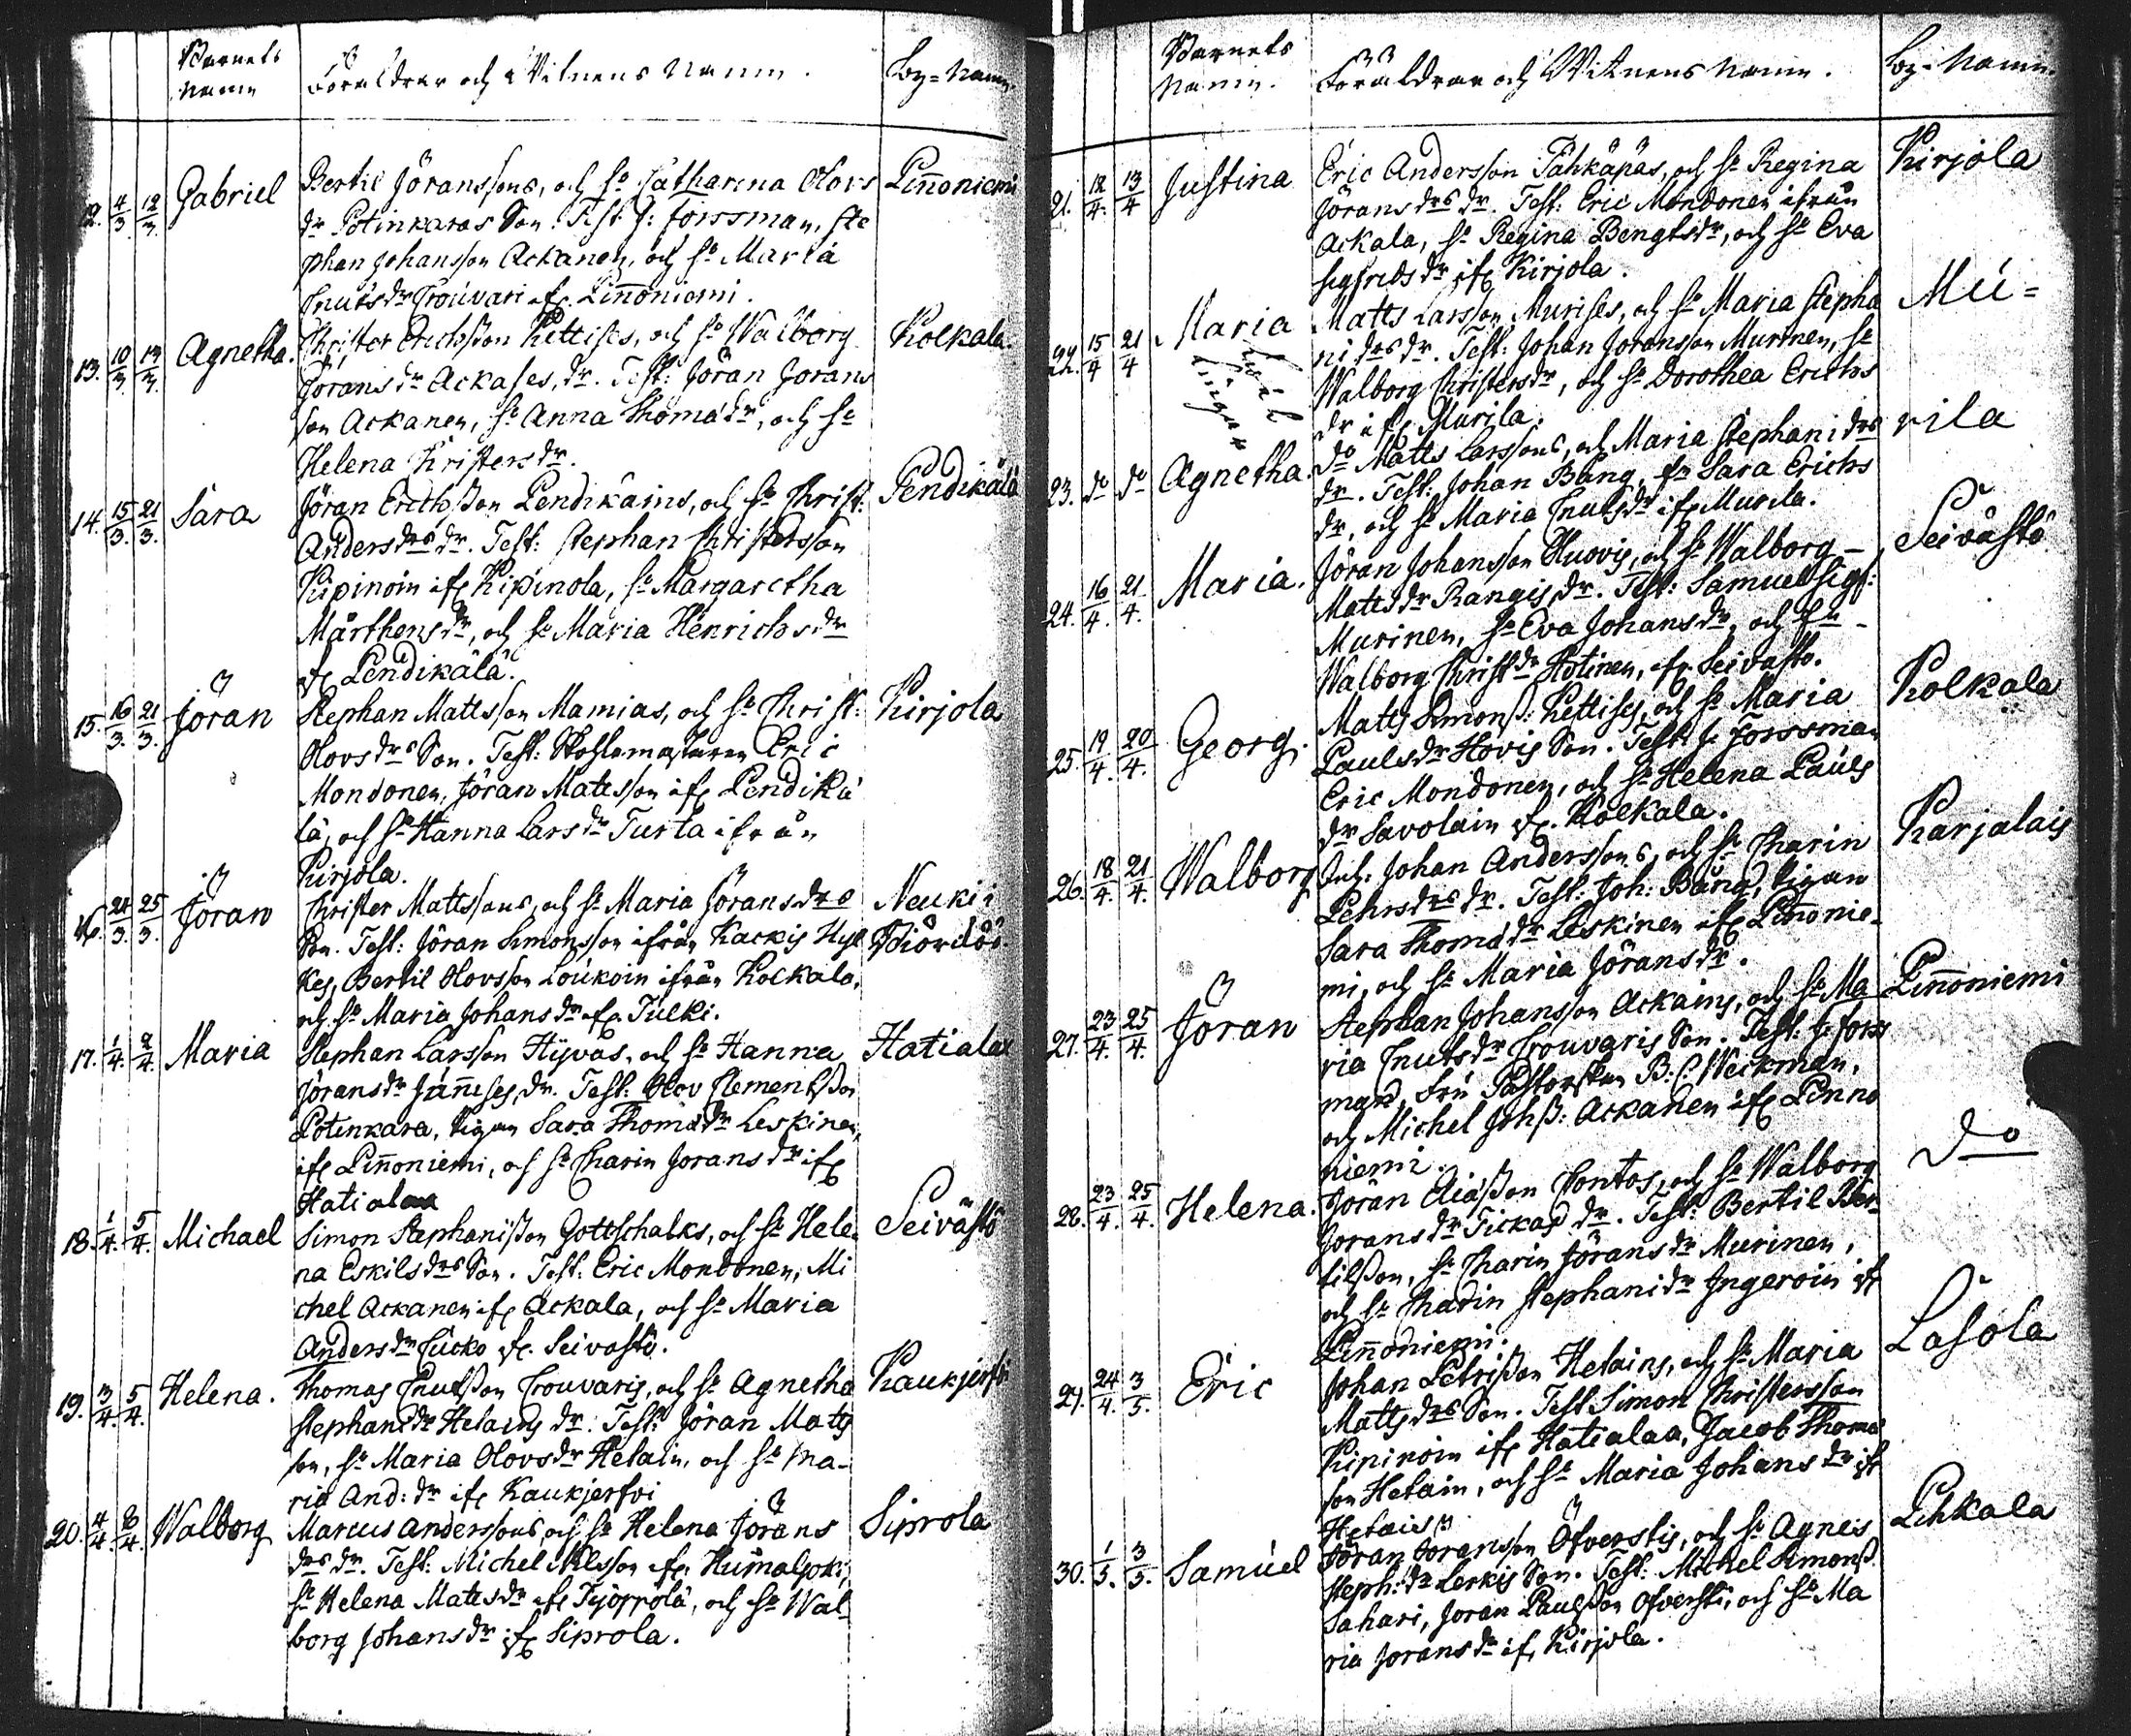 Barnets
Namn
Föräldrar och Witnens Namn.
By=Namn.
12. 4/3. 12/3. Gabriel
Bertil Jöranssons, och h: Catharina Olovs
dr Potinkaras Son. Test: J: Forssman, Ste
phan Johansson Ackanen, och h: Maria
Cnutsdr Crouvari if: Linnoniemi.
Linnoniemi
13. 10/3. 14/3. Agnetha.
Christer Erichsson Kettises, och h: Walborg
Jöransdr Ackases, dr. Test: Jöran Jörans
son Ackanen, h: Anna Thomædr, och h:
Helena Christersdr.
Kolkala.
14. 15/3. 21/3. Sara
Jöran Erichsson Pendikains, och h: Christ:
Andersdrs dr. Test: Stephan Christersson
Kipinoin if: Kipinola, h: Margaretha
Mårthensdr, och h: Maria Henrichsdr
if: Pendikälä.
Pendikälä
15. 16/3. 21/3. Jöran
Stephan Mattsson Mamias, och h: Christ:
Olovsdrs Son. Test: Eric
Mondonen, Jöran Matesson if: Pendikä
lä, och h: Hanna Larsdr Turta ifrån
Kirjola.
Kirjola
16. 24/3. 25/3. Jöran
Christer Mattssons, och h: Maria Jöransdrs
Son. Test: Jöran Simonsson ifrån Kackis Hyl
kes, Bertil Olovsson Loukoin ifrån Kolkala,
och h: Maria Johansdr if: Tulki.
Neuki i
Biörckö
17. 1/4. 2/4. Maria
Stephan Larsson Hyväs, och h: Hanna
Jöransdr Jännises, dr. Test: Olov Clementsson
Potinkara, Pigan Sara Thomædr Leskinen,
if: Linnoniemi, och h: Charin Joransdr if:
Hatialaa
Hatialaa
18. 1/4. 5/4. Michael
Simon Stephanisson Gottschalks, och h: Hele
na Eskilsdrs Son. Test: Eric Mondonen, Mi
chel Ackanen if: Ackala, och h: Maria
Andersdr Cucko if: Seivastö.
Seivästö
19. 3/4. 5/4. Helena.
Thomas Cnutsson Crouvaris, och h: Agnetha
Stephansdr Hetains dr. Test: Jöran Matts
son, h: Maria Olovsdr Hetain, och h: Ma-
ria And: dr if: Kaukjerfvi
Kaukjerfvi
20. 4/4. 8/4. Walborg
Marcus Anderssons, och h: Helena Jörans
drs dr. Test: Michel Nilsson if: Humaljoki,
h: Helena Matesdr if: Tyoppölä, och h: Wal
borg Johansdr if: Siprola.
Siprola
Barnets
Namn.
Föräldrar och Witnens Namn.
By=Namn.
21. 12/4. 13/4 Justina
Eric Andersson Tähkäpäs, och h: Regina
Jöransdrs dr. Test: Eric Mondonen ifrån
Ackala, h: Regina Bengtsdr, och h: Eva
Sigfridsdr if: Kirjola.
Kirjola
22. 15/4 21/4 Maria
Matts Larsson Murises, och h: Maria Stepha
ni drs dr. Test: Johan Joransson Murinen, h:
Walborg Christersdr, och h: Dorothea Erichs
dr if: Murila.
Mu=
23. do do Agnetha.
do Matts Larssons, och Maria Stephanidrs
dr. Test: Johan Bang, h: Sara Erichs
dr, och h: Maria Cnutsdr if: Murila.
rila
24. 16/4. 21/4. Maria.
Jöran Johansson Huovis, och h: Walborg
Mattsdr Rangis dr. Test: Samuel Sigf:
Murinen, h: Eva Johansdr, och h:
Walborg Christdr Hotinen, if: Seivasto.
Seivästö
25. 19/4. 20/4. Georg.
Matts Simonss: Kettises, och h: Maria
Paulsdr Hovis Son. Test: J: Forssman
Eric Mondonen, och h: Helena Pauls
dr Savolain if: Kolkala.
Kolkala
26. 18/4. 21/4. Walborg
Inh: Johan Anderssons, och h: Charin
Pehrsdrs dr. Test: Joh: Bång, Pigan
Sara Thomædr Leskinen if: Linnonie-
mi, och h: Maria Jöransdr.
Karjalais
27. 23/4. 25/4. Jöran
Stephan Johansson Ackains, och h: Ma
ria Cnutsdr Crouvaris Son. Test: J: Forss
man, Fru Pastorskan B: C: Weckman,
och Michel Johss: Ackanen if: Linno
niemi.
Linnoniemi
28. 23/4. 25/4. Helena.
Jöran Eliæsson Pontos, och h: Walborg
Joransdr Tickas dr. Test: Bertil Ber
tilsson, h: Charin Jöransdr Murinen,
och h: Charin Stephanidr Ingeroin if:
Linnoniemi.
do
29. 24/4. 3/5. Eric
Johan Petrisson Hetains, och h: Maria
Mattsdrs Son. Test: Simon Christersson
Kipinoin if: Hatialaa, Jacob Thomæ
son Hetain, och h: Maria Johansdr if:
Hetais
Lasola
30. 1/5. 3/5. Samuel
Jöran Joransson Öfverstis, och h: Agnes
Steph: dr Leskis Son. Test: Michel Simonss.
Sahari, Joran Paulsson Ofversti, och h: Ma
ria Joransdr if: Kirjola.
Lehkala